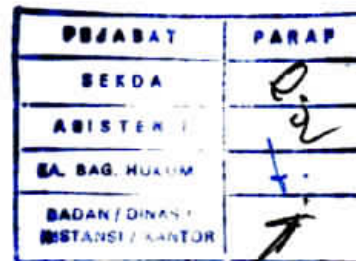 PEJABAT PARAF
SEKDA
ASISTEN I
KA. BAG. HUKUM
BADAN / DINAS /
INSTANSI / KANTOR